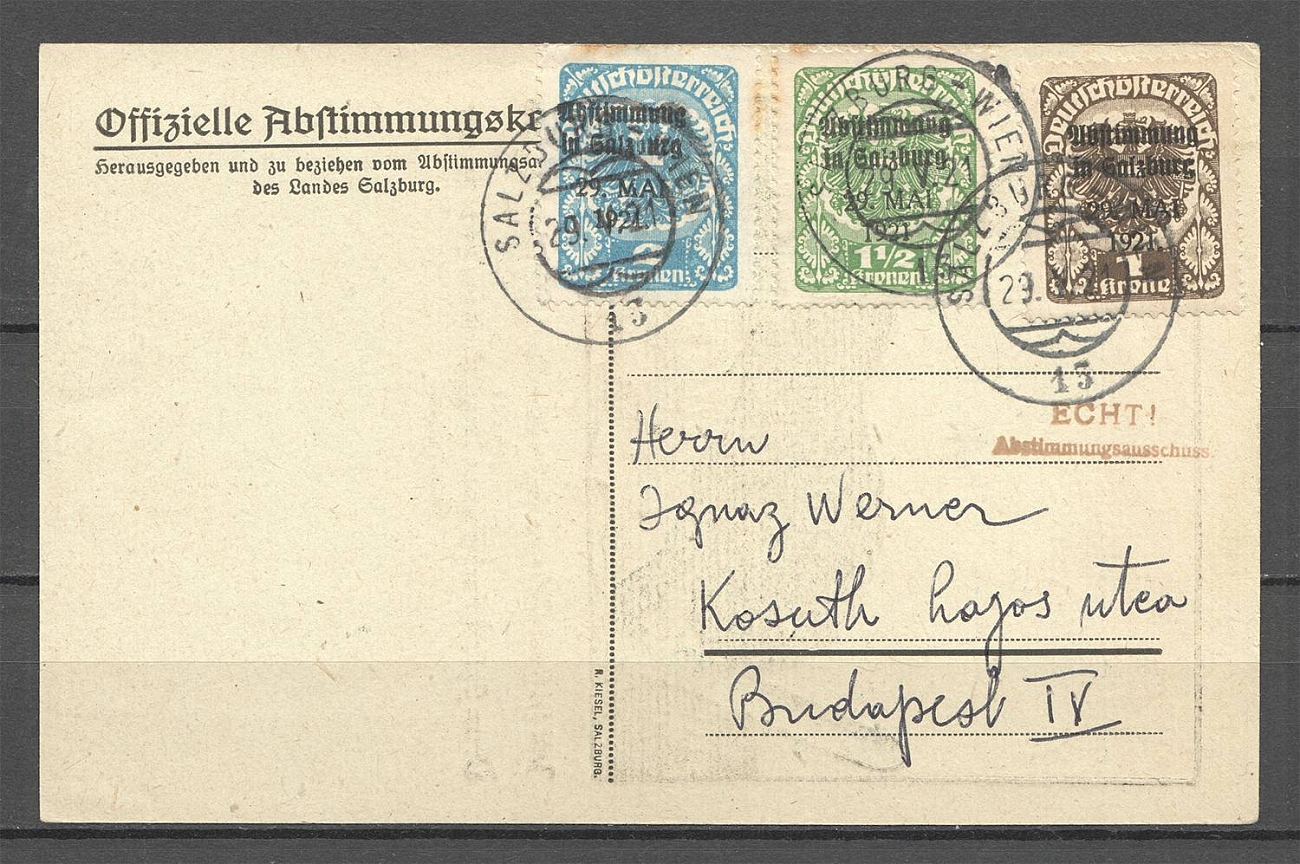 Offizielle Abstimmungske
Herausgegeben und zu beziehen vom Abstimmungsa
des Landes Salzburg.
Deutschösterreich
Abstimmung
in Salzburg
29. MAI
1921.
2
Kronen
SALZBURG-WIEN
29.
13
Deutschösterreich
Abstimmung
in Salzburg
29. MAI
1921.
1½
Kronen
BURG-WIEN
29.V.21
Deutschösterreich
Abstimmung
in Salzburg
29. MAI
1921.
1
Krone
SALZBURG
29.
13
ECHT!
Abstimmungsausschuss.
Herrn
Ignaz Werner
Kosuth Lajos utca
Budapest IV
R. KIESEL, SALZBURG.